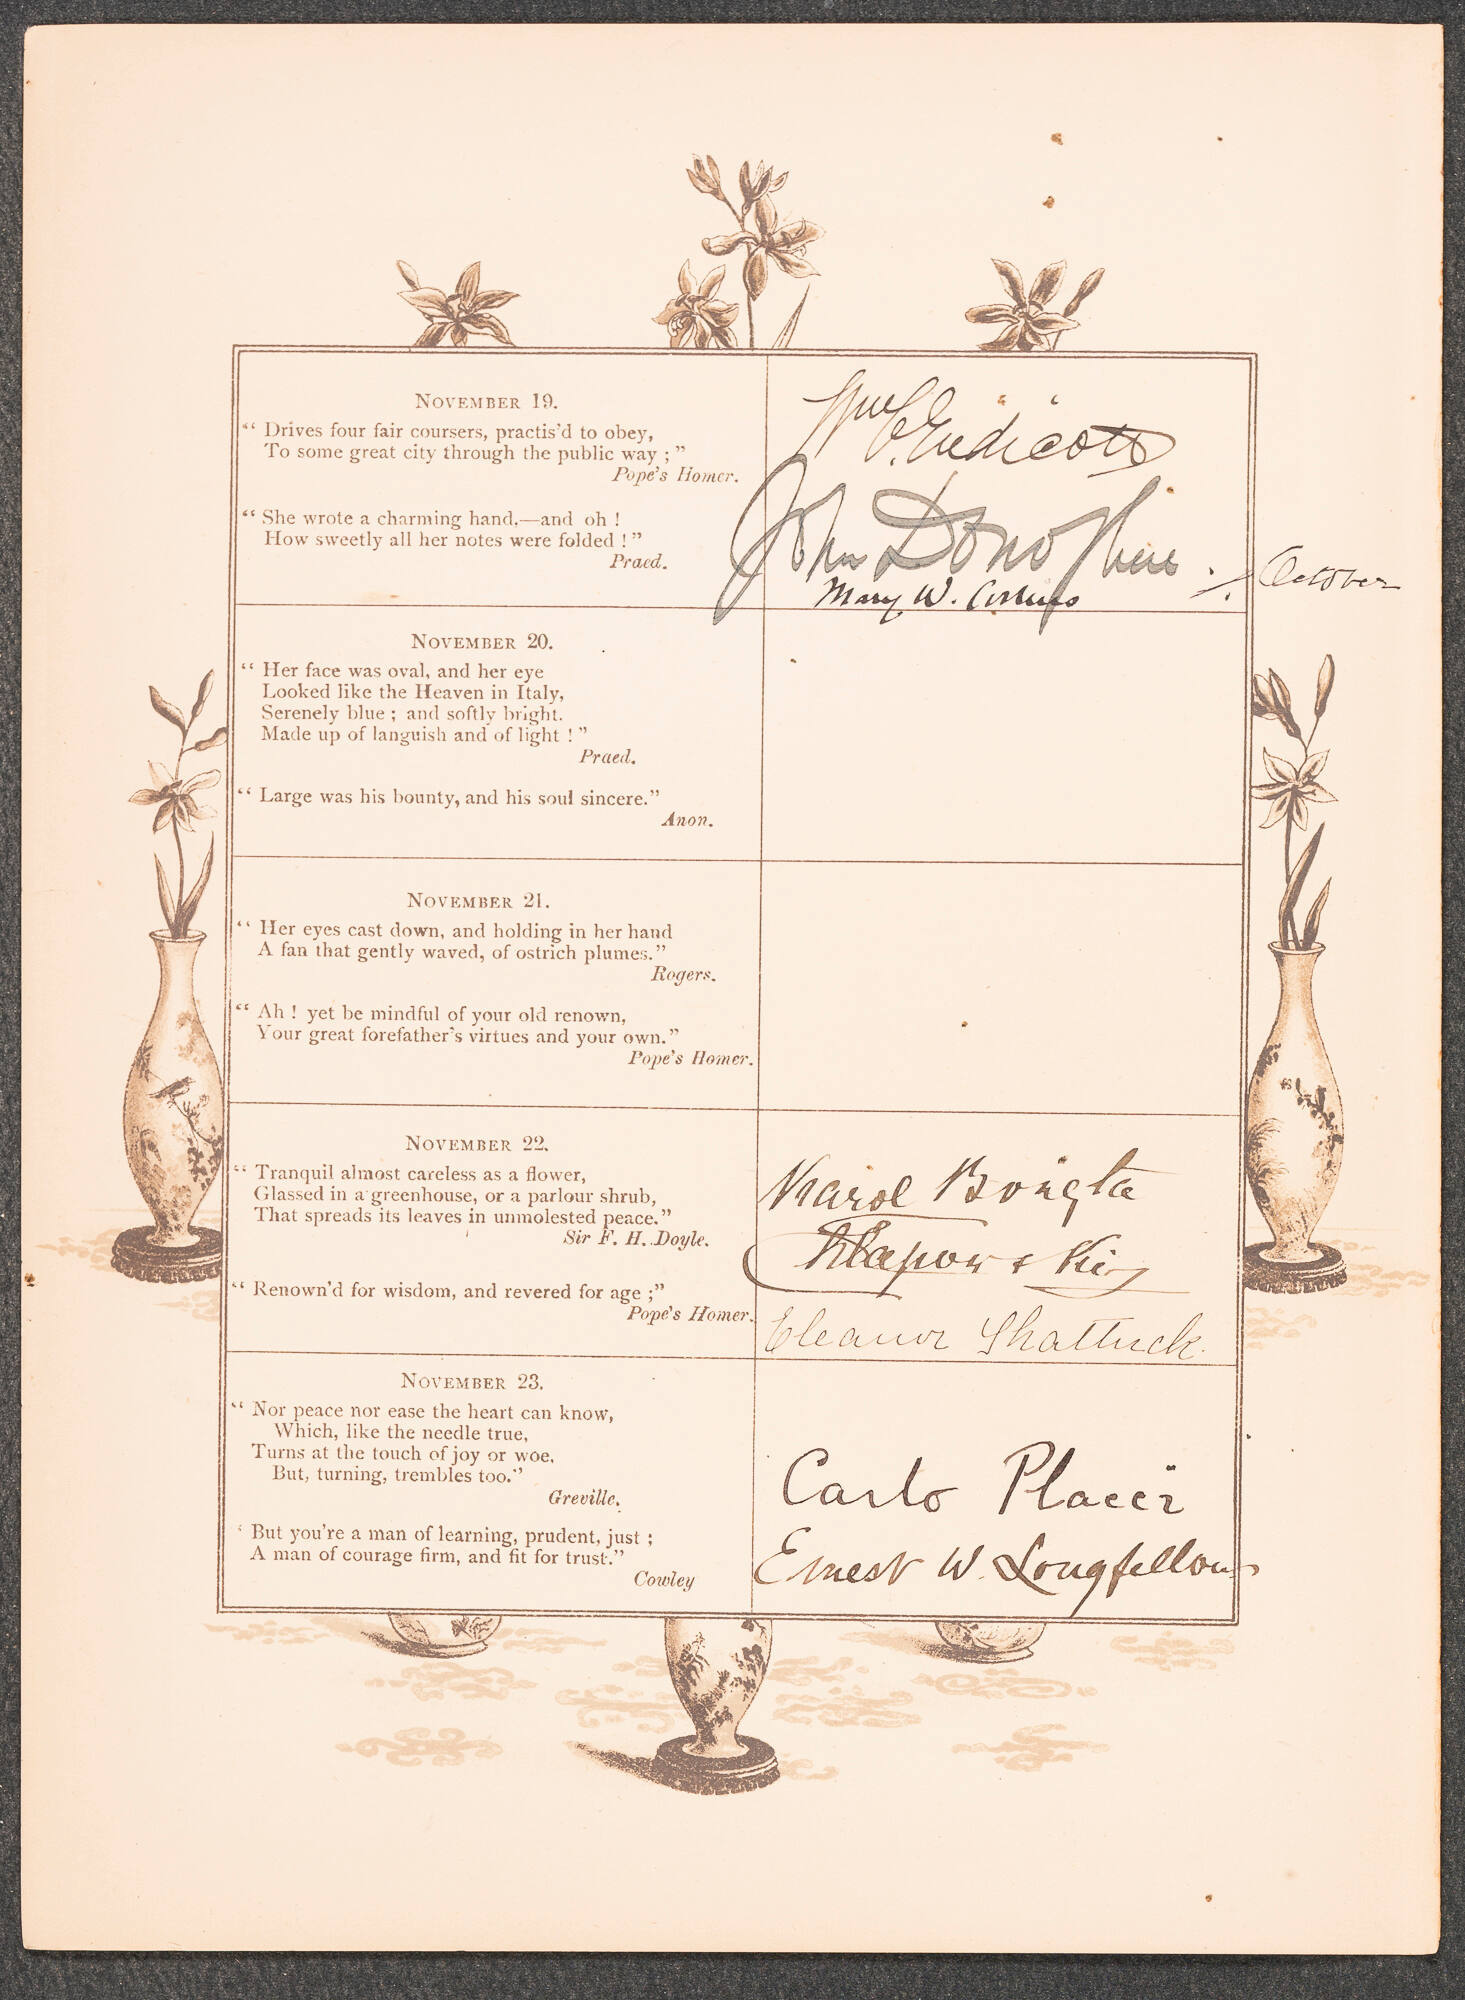 NOVEMBER 19.
“ Drives four fair coursers, practis’d to obey,
To some great city through the public way ; ”
Pope’s Homer.
“ She wrote a charming hand,—and oh !
How sweetly all her notes were folded ! ”
Praed.
Wm C. Endicott
John Donoghue
Mary W.
October
NOVEMBER 20.
“ Her face was oval, and her eye
Looked like the Heaven in Italy,
Serenely blue ; and softly bright.
Made up of languish and of light ! ”
Praed.
“ Large was his bounty, and his soul sincere.”
Anon.
NOVEMBER 21.
“ Her eyes cast down, and holding in her hand
A fan that gently waved, of ostrich plumes.”
Rogers.
“ Ah ! yet be mindful of your old renown,
Your great forefather’s virtues and your own.”
Pope’s Homer.
NOVEMBER 22.
“ Tranquil almost careless as a flower,
Glassed in a greenhouse, or a parlour shrub,
That spreads its leaves in unmolested peace.”
Sir F. H. Doyle.
“ Renown’d for wisdom, and revered for age ;”
Pope’s Homer.
Karol
Eleanor Shattuck.
NOVEMBER 23.
“ Nor peace nor ease the heart can know,
Which, like the needle true,
Turns at the touch of joy or woe,
But, turning, trembles too.”
Greville.
‘ But you’re a man of learning, prudent, just ;
A man of courage firm, and fit for trust.”
Cowley
Carlo Placci
Ernest W. Longfellow